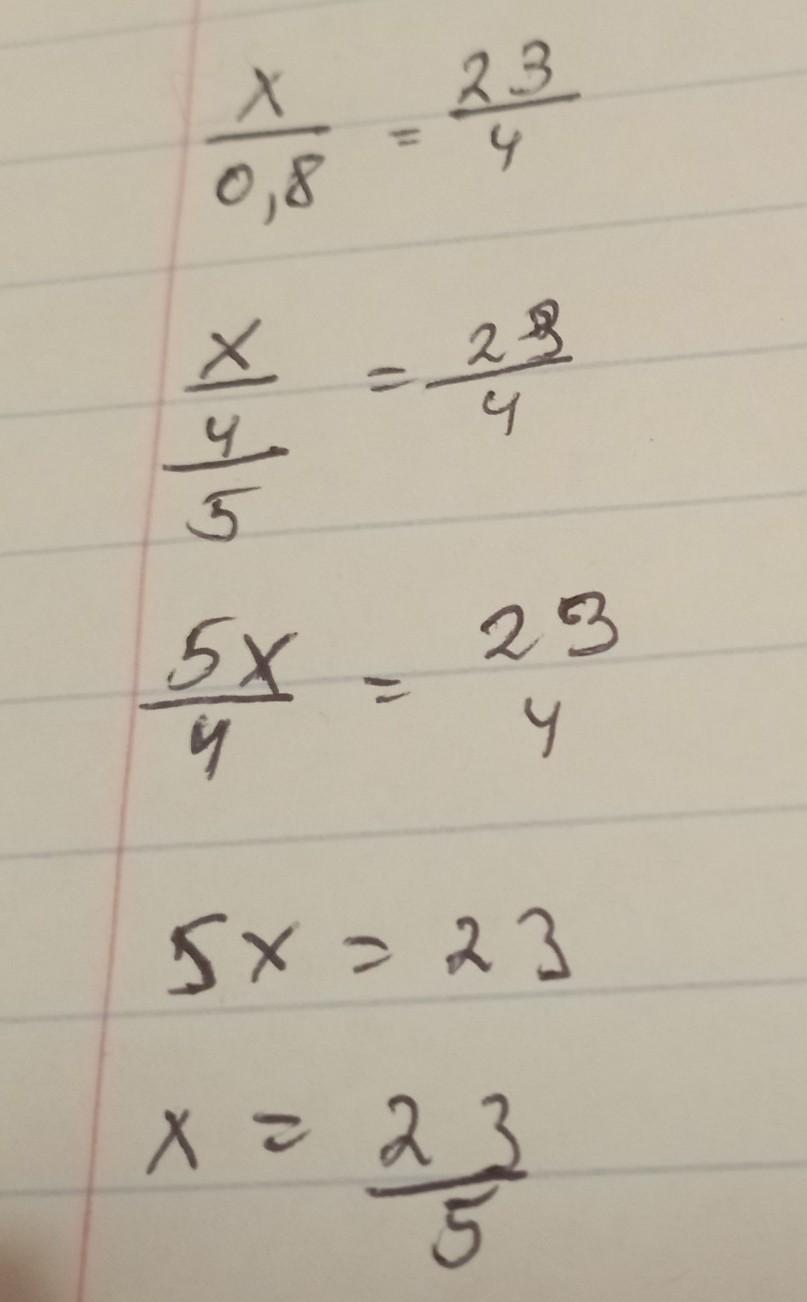 x/0,8 = 23/4
x/(4/5) = 23/4
5x/4 = 23 4
5x = 23
x = 23/5